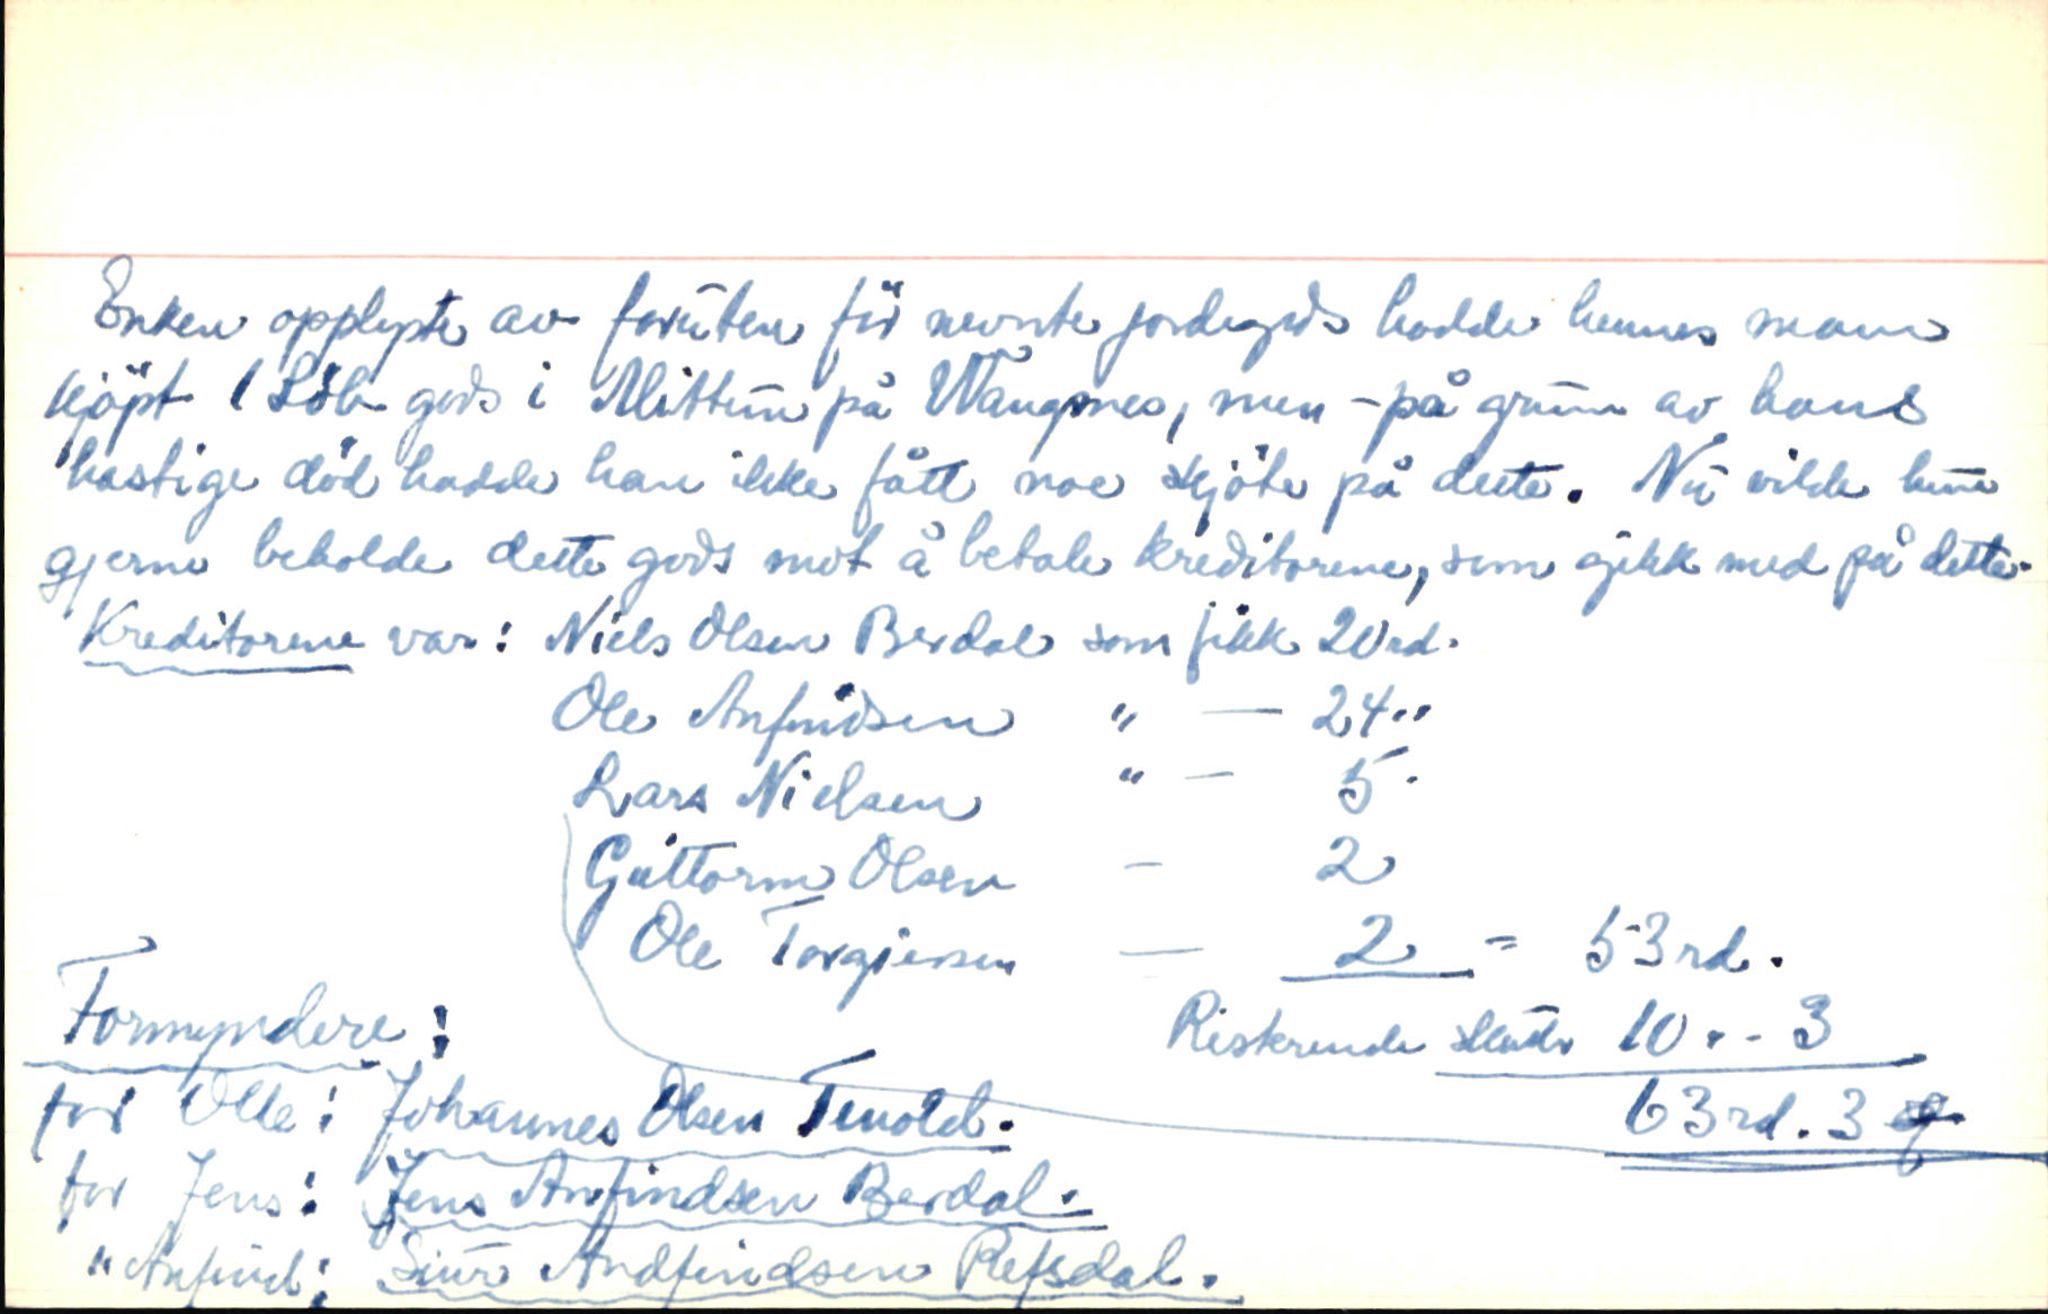 Enken opplyste av foruten för nevnte jordegods hadde hennes mann
kjöpt 1 Löb gods i Mittun på Wangsnes, men - på grunn av hans
hastige död hadde han ikke fått noe skjöte på dette. Nu vilde hun
gjerne beholde dette gods mot å betale kreditorene, som gjekk med på dette.
Kreditorene var: Niels Olsen Berdal som fikk 20 rd.
Ole Anfindsen " — 24 "
Lars Nielsen " — 5 .
Guttorm Olsen — 2
Ole Torgiersen — 2 = 53 rd.
Formyndere :
Resterende skatt 10 . - 3
63 rd. 3
for Olle : Johannes Olsen Tenold.
for Jens : Jens Anfindsen Berdal.
" Anfind : Siur Andfindsen Refsdal.